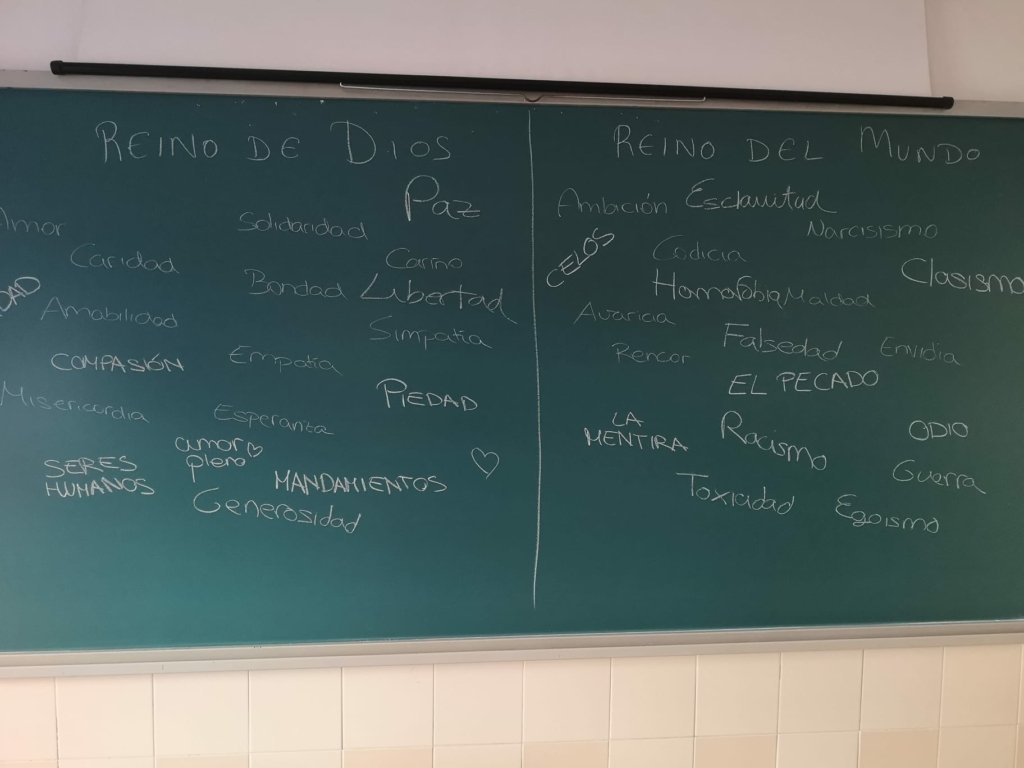 REINO DE DIOS
Paz
Amor
Solidaridad
Caridad
Cariño
DAD
Bondad
Libertad
Amabilidad
Simpatía
COMPASIÓN
Empatía
PIEDAD
Misericordia
Esperanza
amor♡
pleno
SERES
HUMANOS
MANDAMIENTOS
♡
Generosidad
REINO DEL MUNDO
Ambición
Esclavitud
Narcisismo
CELOS
Codicia
Clasismo
Homofobia
Maldad
Avaricia
Falsedad
Envidia
Rencor
EL PECADO
LA
MENTIRA
Racismo
ODIO
Guerra
Toxicidad
Egoismo